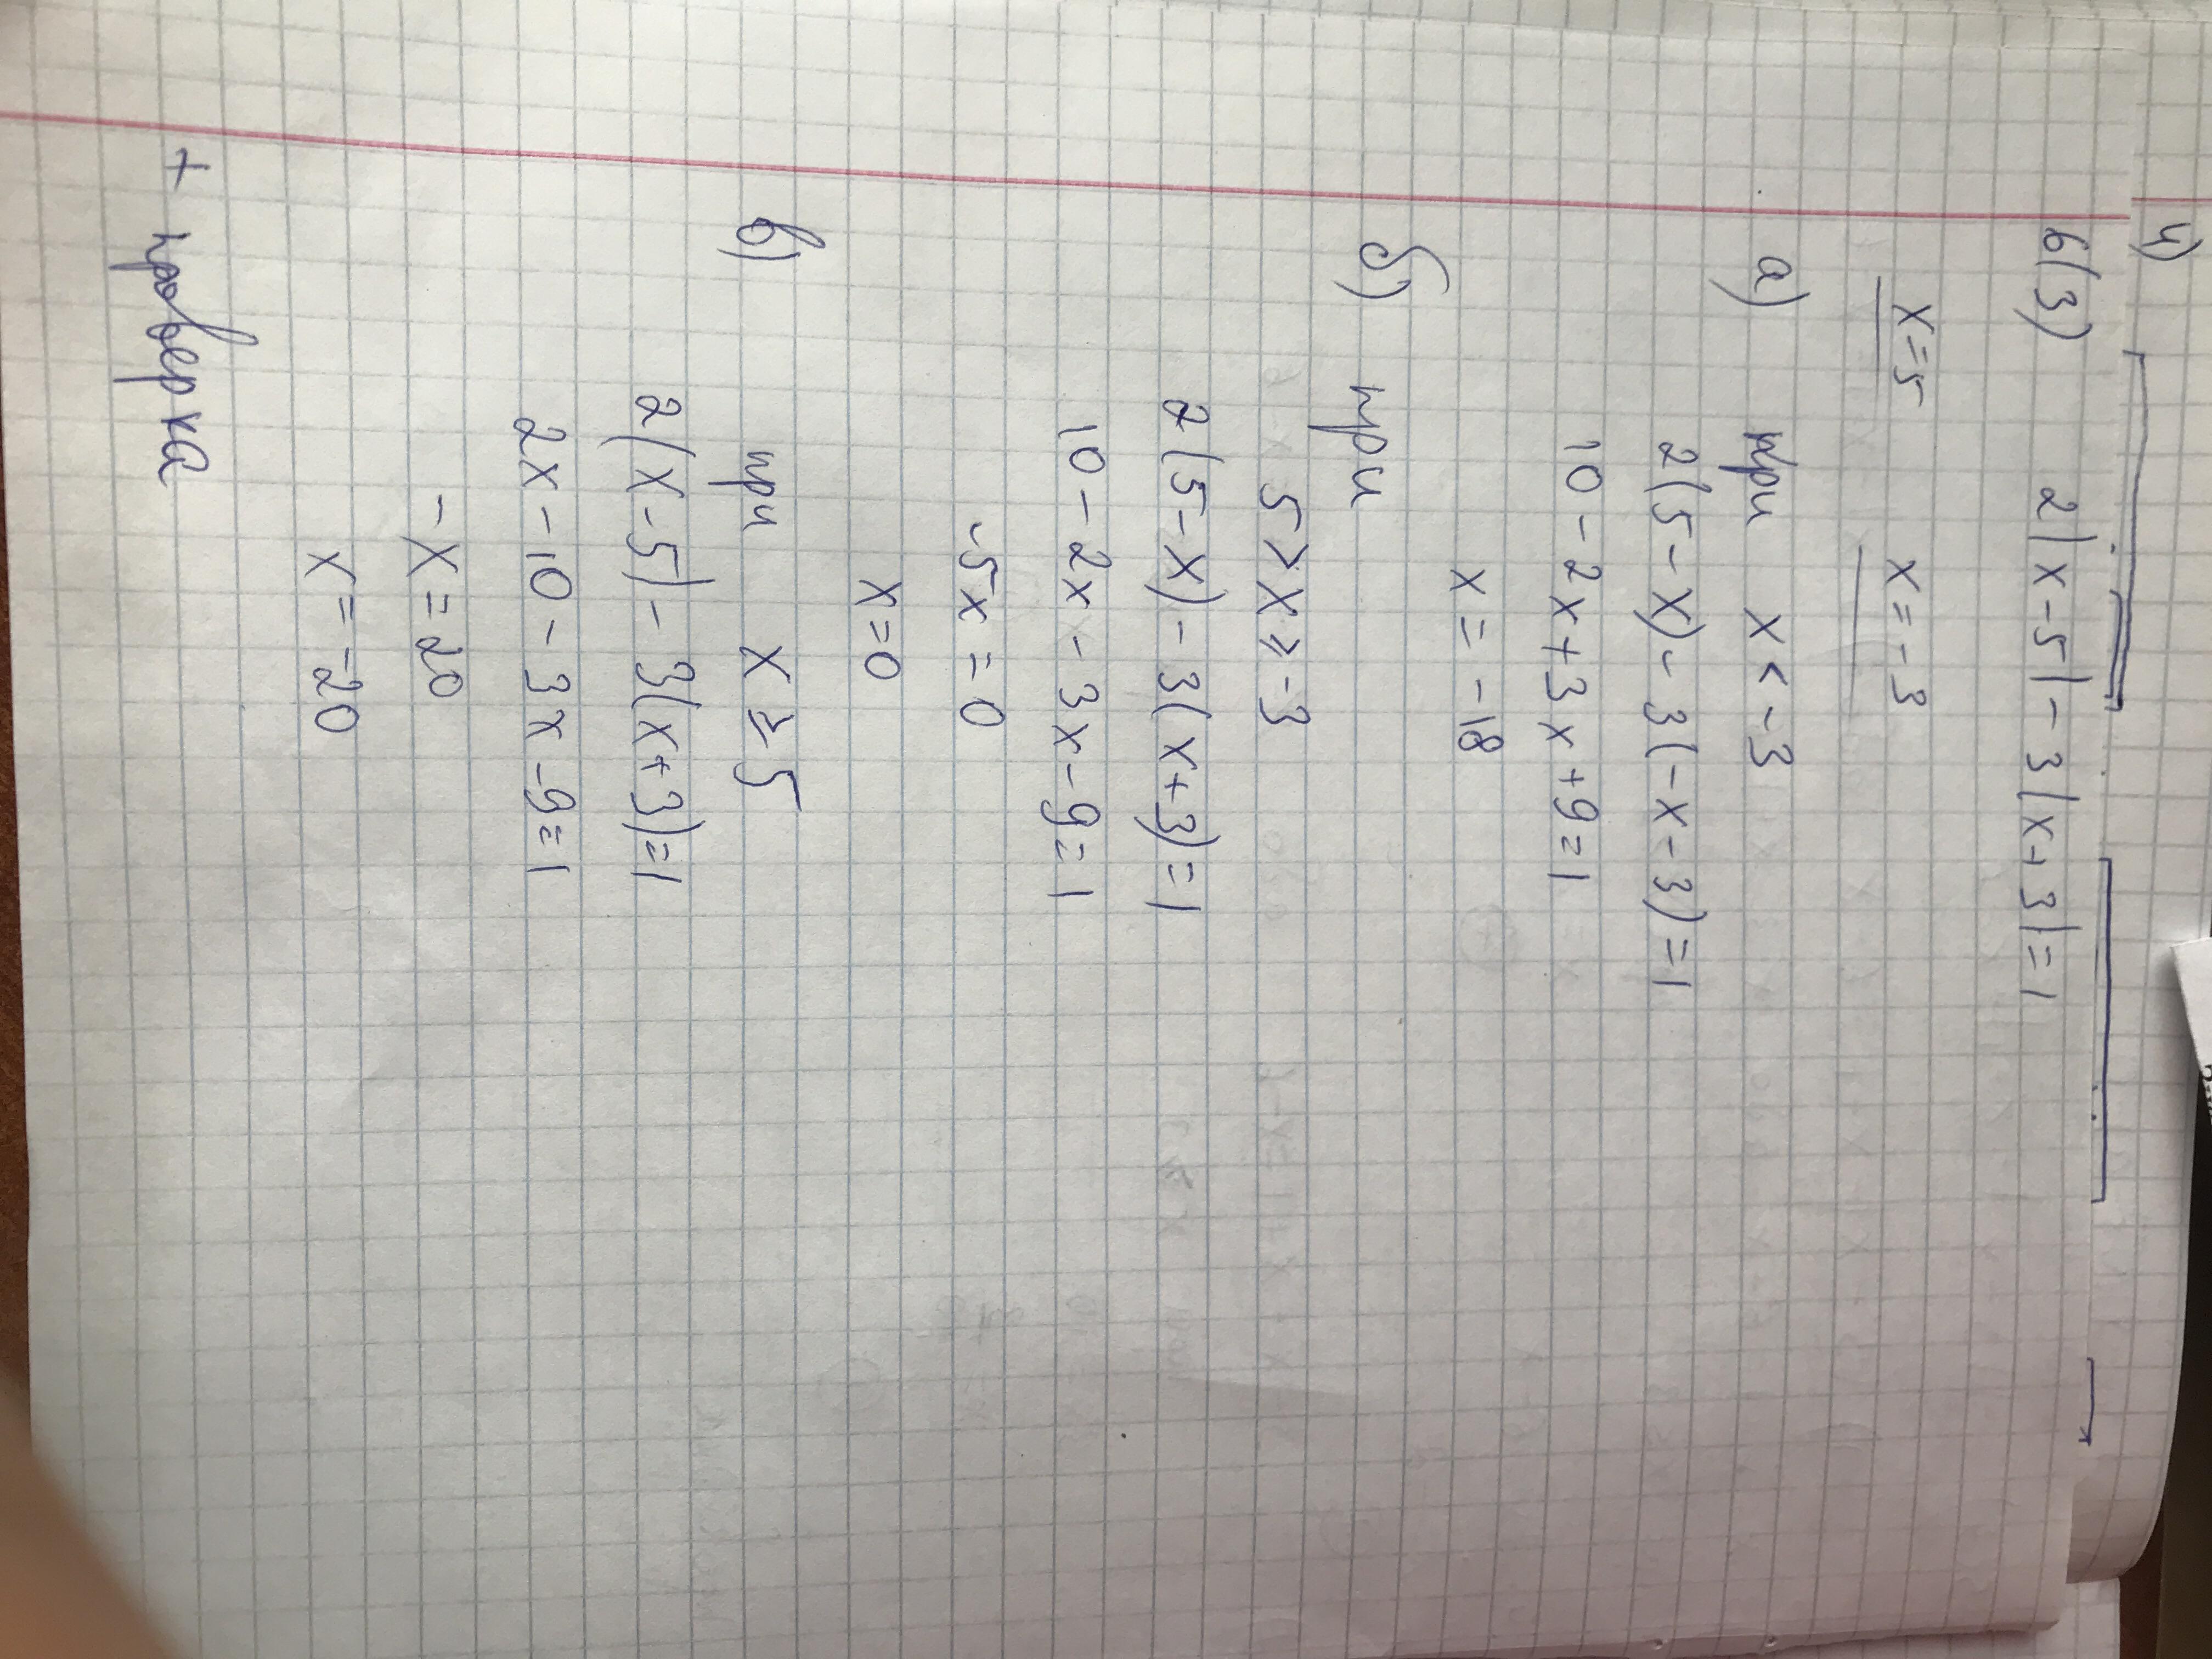 4)
6(3) 2|x-5|-3|x+3|=1
x=5 x=-3
а) при x<-3
2(5-x)-3(-x-3)=1
10-2x+3x+9=1
x=-18
б) при
5>x⩾-3
2(5-x)-3(x+3)=1
10-2x-3x-9=1
-5x=0
x=0
в) при x⩾5
2(x-5)-3(x+3)=1
2x-10-3x-9=1
-x=20
x=-20
+ проверка